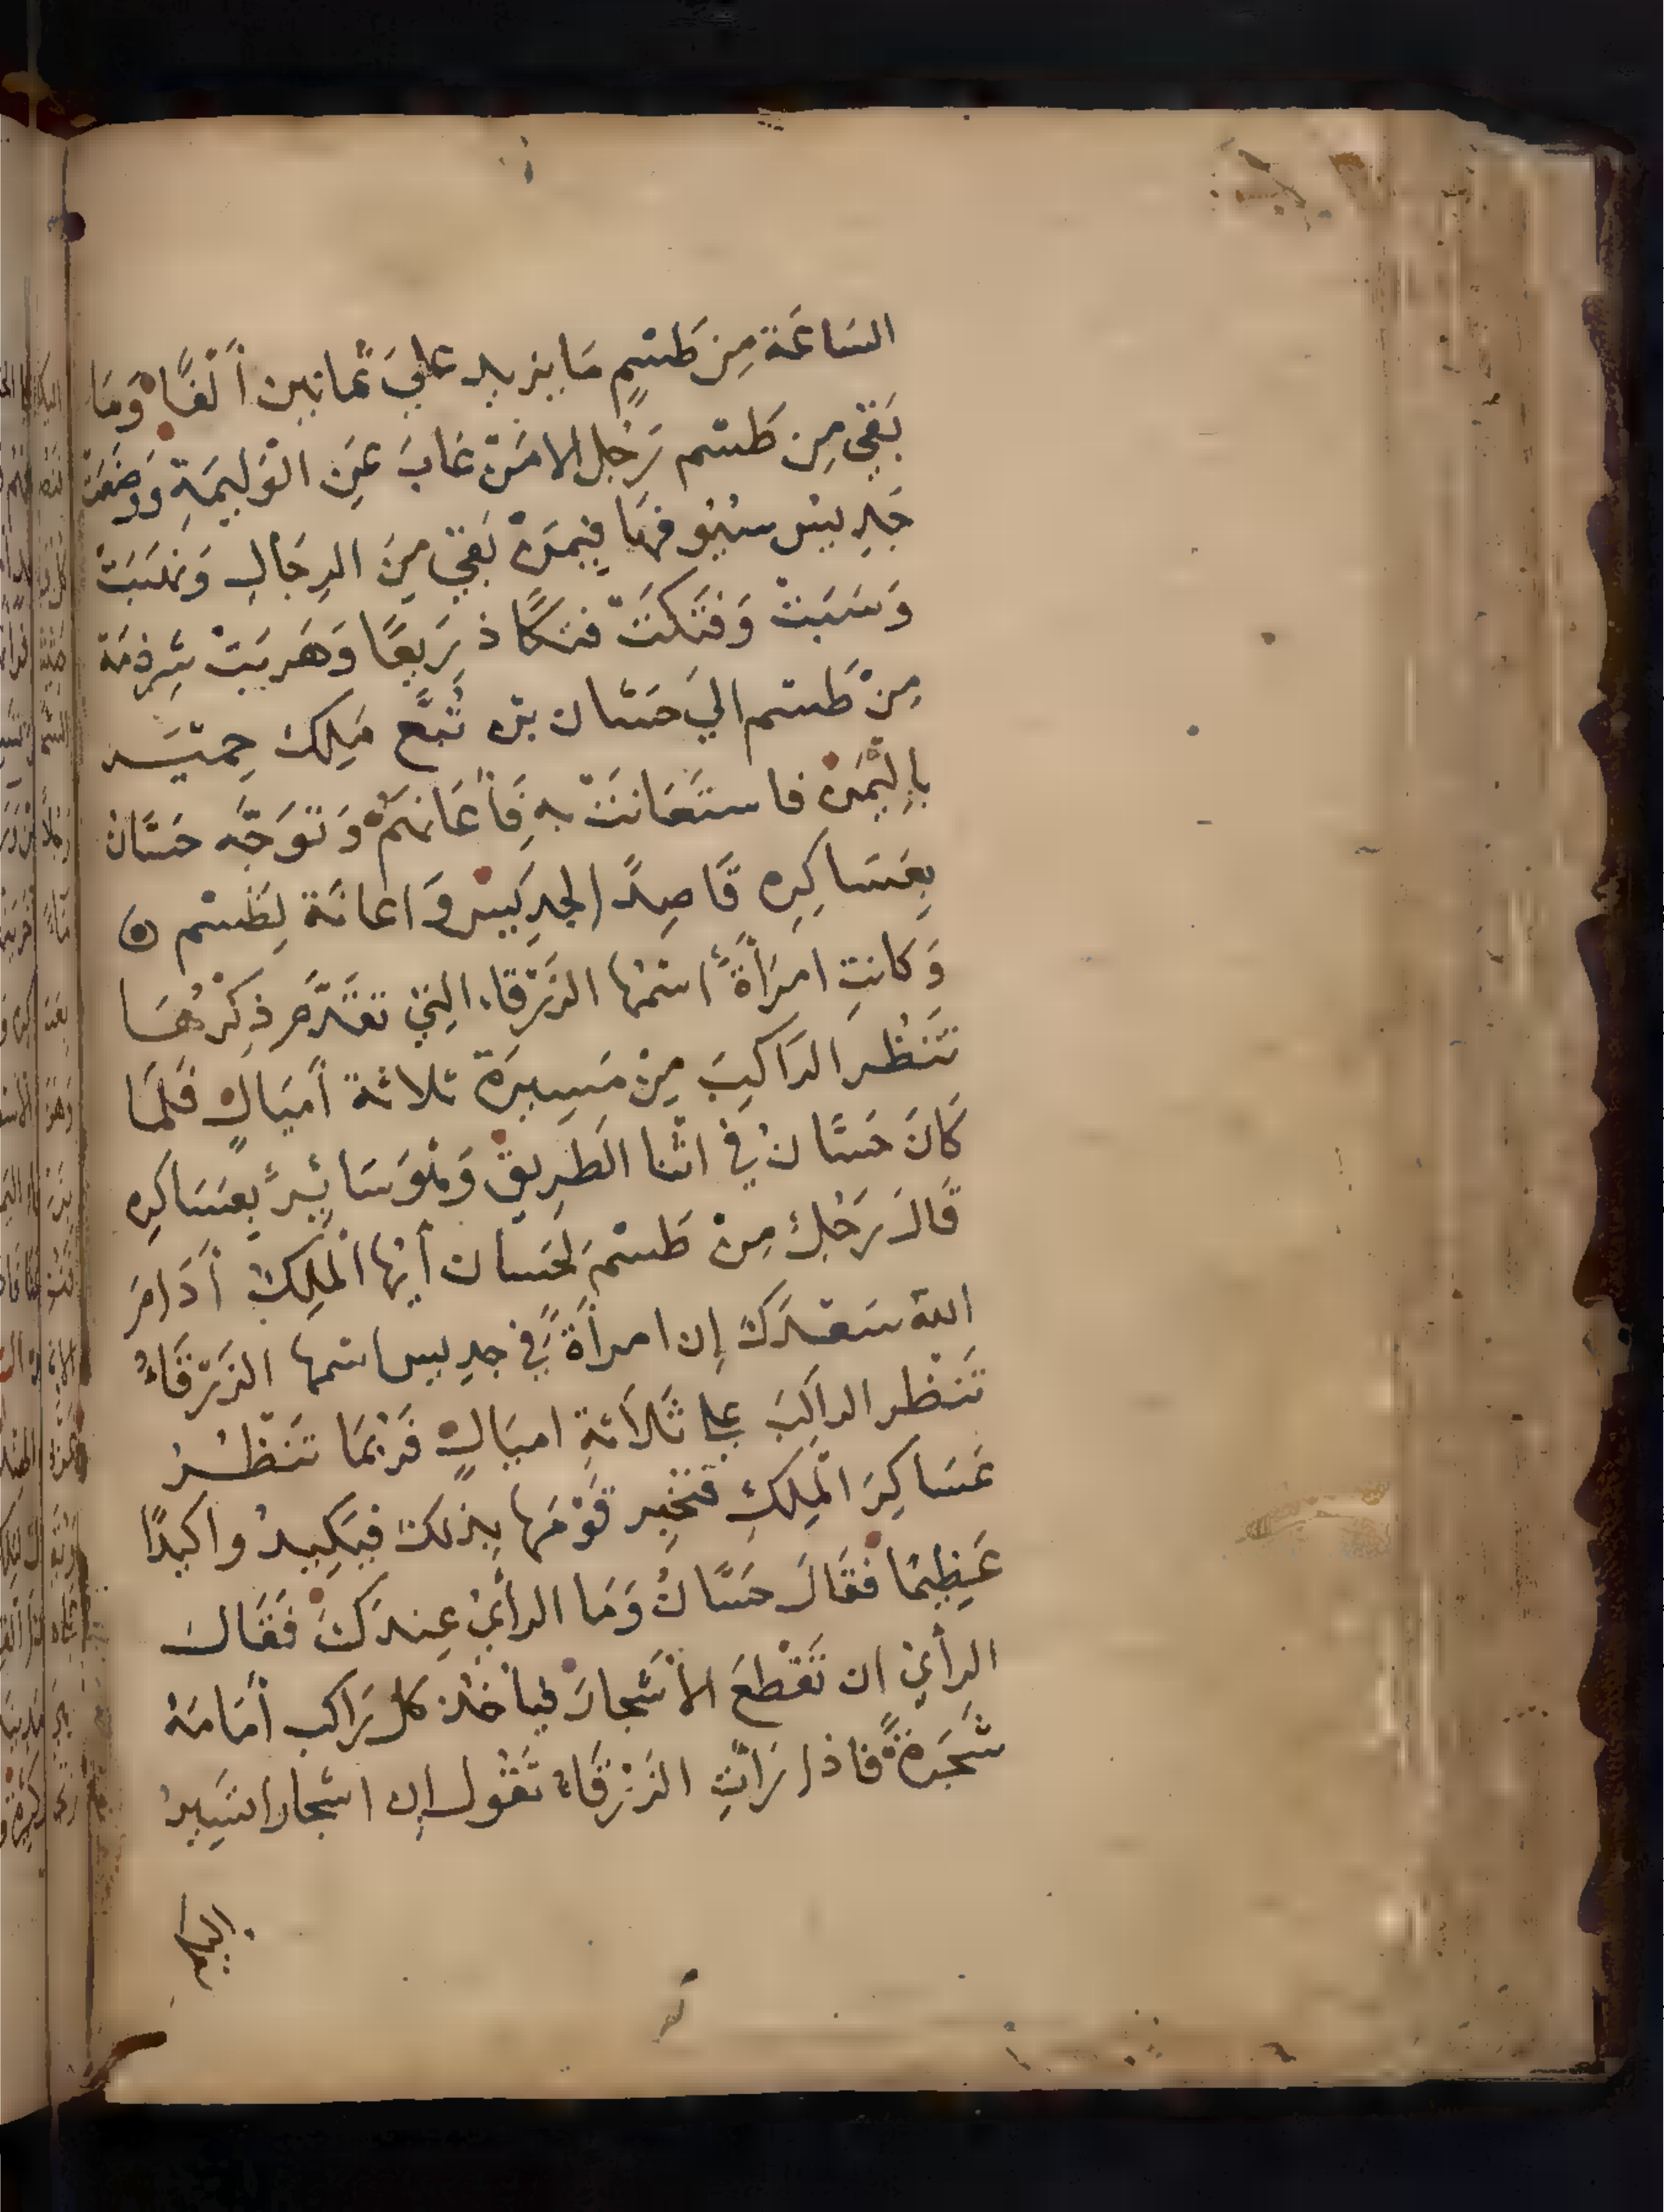 السَاعَة مِن طَسْمٍ مَا يزيد عليَ ثمانين أَلْفًا وَمَا
بَقي مِن طَسْم رَجُل الا مَنْ غابَ عَنِ الْوَلِيمَةِ وَوَضَعَتْ
جَدِيسْ سُيُوفهَا فِيمَنْ بَقيَ مِنَ الرِجَالِ وَنَهَبَتْ
وَسَبَتْ وَفَتَكَتْ فتكًا ذَرِيعًا وَهَرَبَتْ شِرذِمَة
مِنْ طَسْم اليَ حَسّان بن تُبَّع مَلِكَ حِمْيَر
بِالْيَمَنْ فاستَعَانَتْ بِهِ فَأعَانَهُمْ وَتَوَجَّه حَسَّانُ
بِعَسَاكِرِه قَاصِدً الجدِيسْ وَاعانَة لِطَسْم
وَكانتِ امرَأةً اسْمُهَا الزَرْقاء الَتِي تقَدَّمَ ذِكْرُهَا
تَنظُر الرَاكِبَ مِنْ مَسِيرَة ثلاثة أميَالٍ فَلمَا
كَانَ حَسَّانُ في اثْنا الطَرِيقْ وَهْوَ سَائِرً بِعَسَاكِرِه
قَالَ رَجُلْ مِنْ طَسْم لحَسان أيُّها الْمَلِكُ أَدَامَ
اللهُ سَعْدَكَ إن امرأةً في جديس اسمها الزَرْقَاءُ
تَنْظر الراكِبَ على ثَلَاثةِ اميَالٍ فَرُبمَا تَنظُرُ
عَسَاكِرَ الْمَلِكِ فتُخْبِر قَوْمَهَا بِذلكَ فيَكِيدُوا كيدًا
عَظِيمًا فقَالَ حَسَّانُ وَمَا الرأيُ عِندَكَ فَقَال
الرأي ان تَقْطَعَ الأشَجارَ ليأخُذ كل رَاكِب أمَامَهُ
شَجَرَةً فاذا رَأتِ الزَرْقَاء تَقُول إن اشجارا تسِيرُ
اليكم